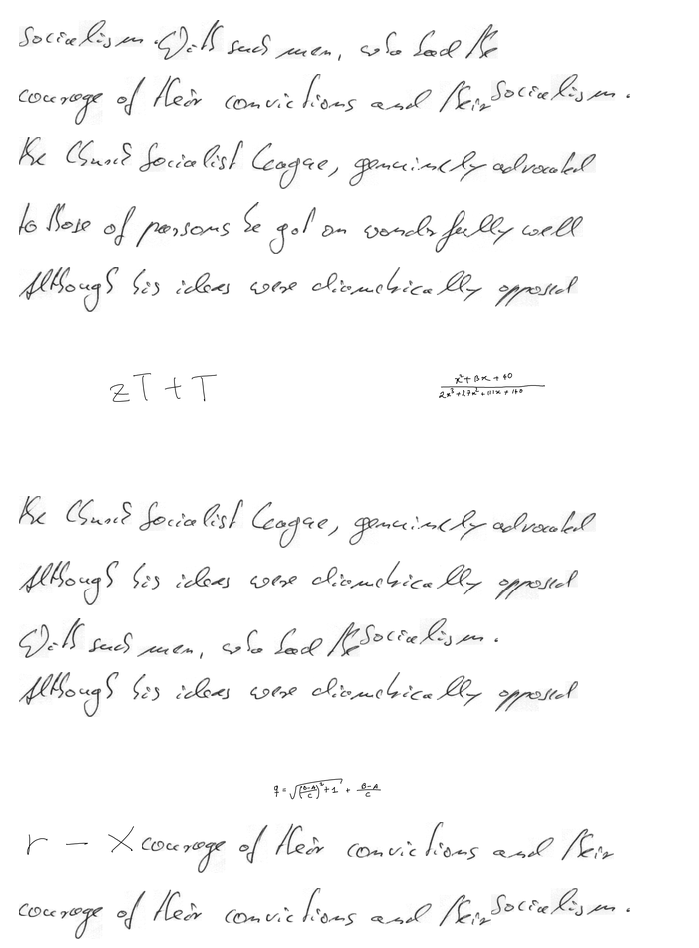 Socialism. With such men, who had the
courage of their convictions and their Socialism.
the Church Socialist League, genuinely advocated
to those of persons he got on wonderfully well
Although his ideas were diametrically opposed
zT + T
\frac{x^2+13x+40}{2x^3+27x^2+111x+140}
the Church Socialist League, genuinely advocated
Although his ideas were diametrically opposed
With such men, who had the Socialism.
Although his ideas were diametrically opposed
\frac{q}{r} = \sqrt{(\frac{B-A}{C})^2+1} + \frac{B-A}{C}
r - X courage of their convictions and their
courage of their convictions and their Socialism.